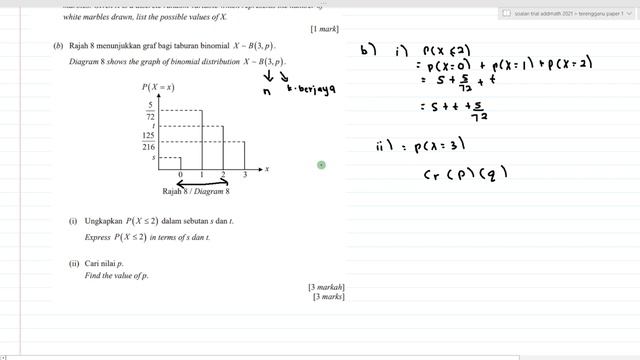 soalan trial addmath 2021 > terengganu paper 1
white marbles drawn, list the possible values of X.
[1 mark]
(b) Rajah 8 menunjukkan graf bagi taburan binomial X ~ B(3, p).
Diagram 8 shows the graph of binomial distribution X ~ B(3, p).
n k. berjaya
P(X = x)
5/72
t
125/216
s
0 1 2 3 x
Rajah 8 / Diagram 8
(i) Ungkapkan P(X ≤ 2) dalam sebutan s dan t.
Express P(X ≤ 2) in terms of s dan t.
(ii) Cari nilai p.
Find the value of p.
[3 markah]
[3 marks]
b) i) P(X ≤ 2)
= P(X=0) + P(X=1) + P(X=2)
= s + 5/72 + t
= s + t + 5/72
ii) = P(X = 3)
Cr (p) (q)